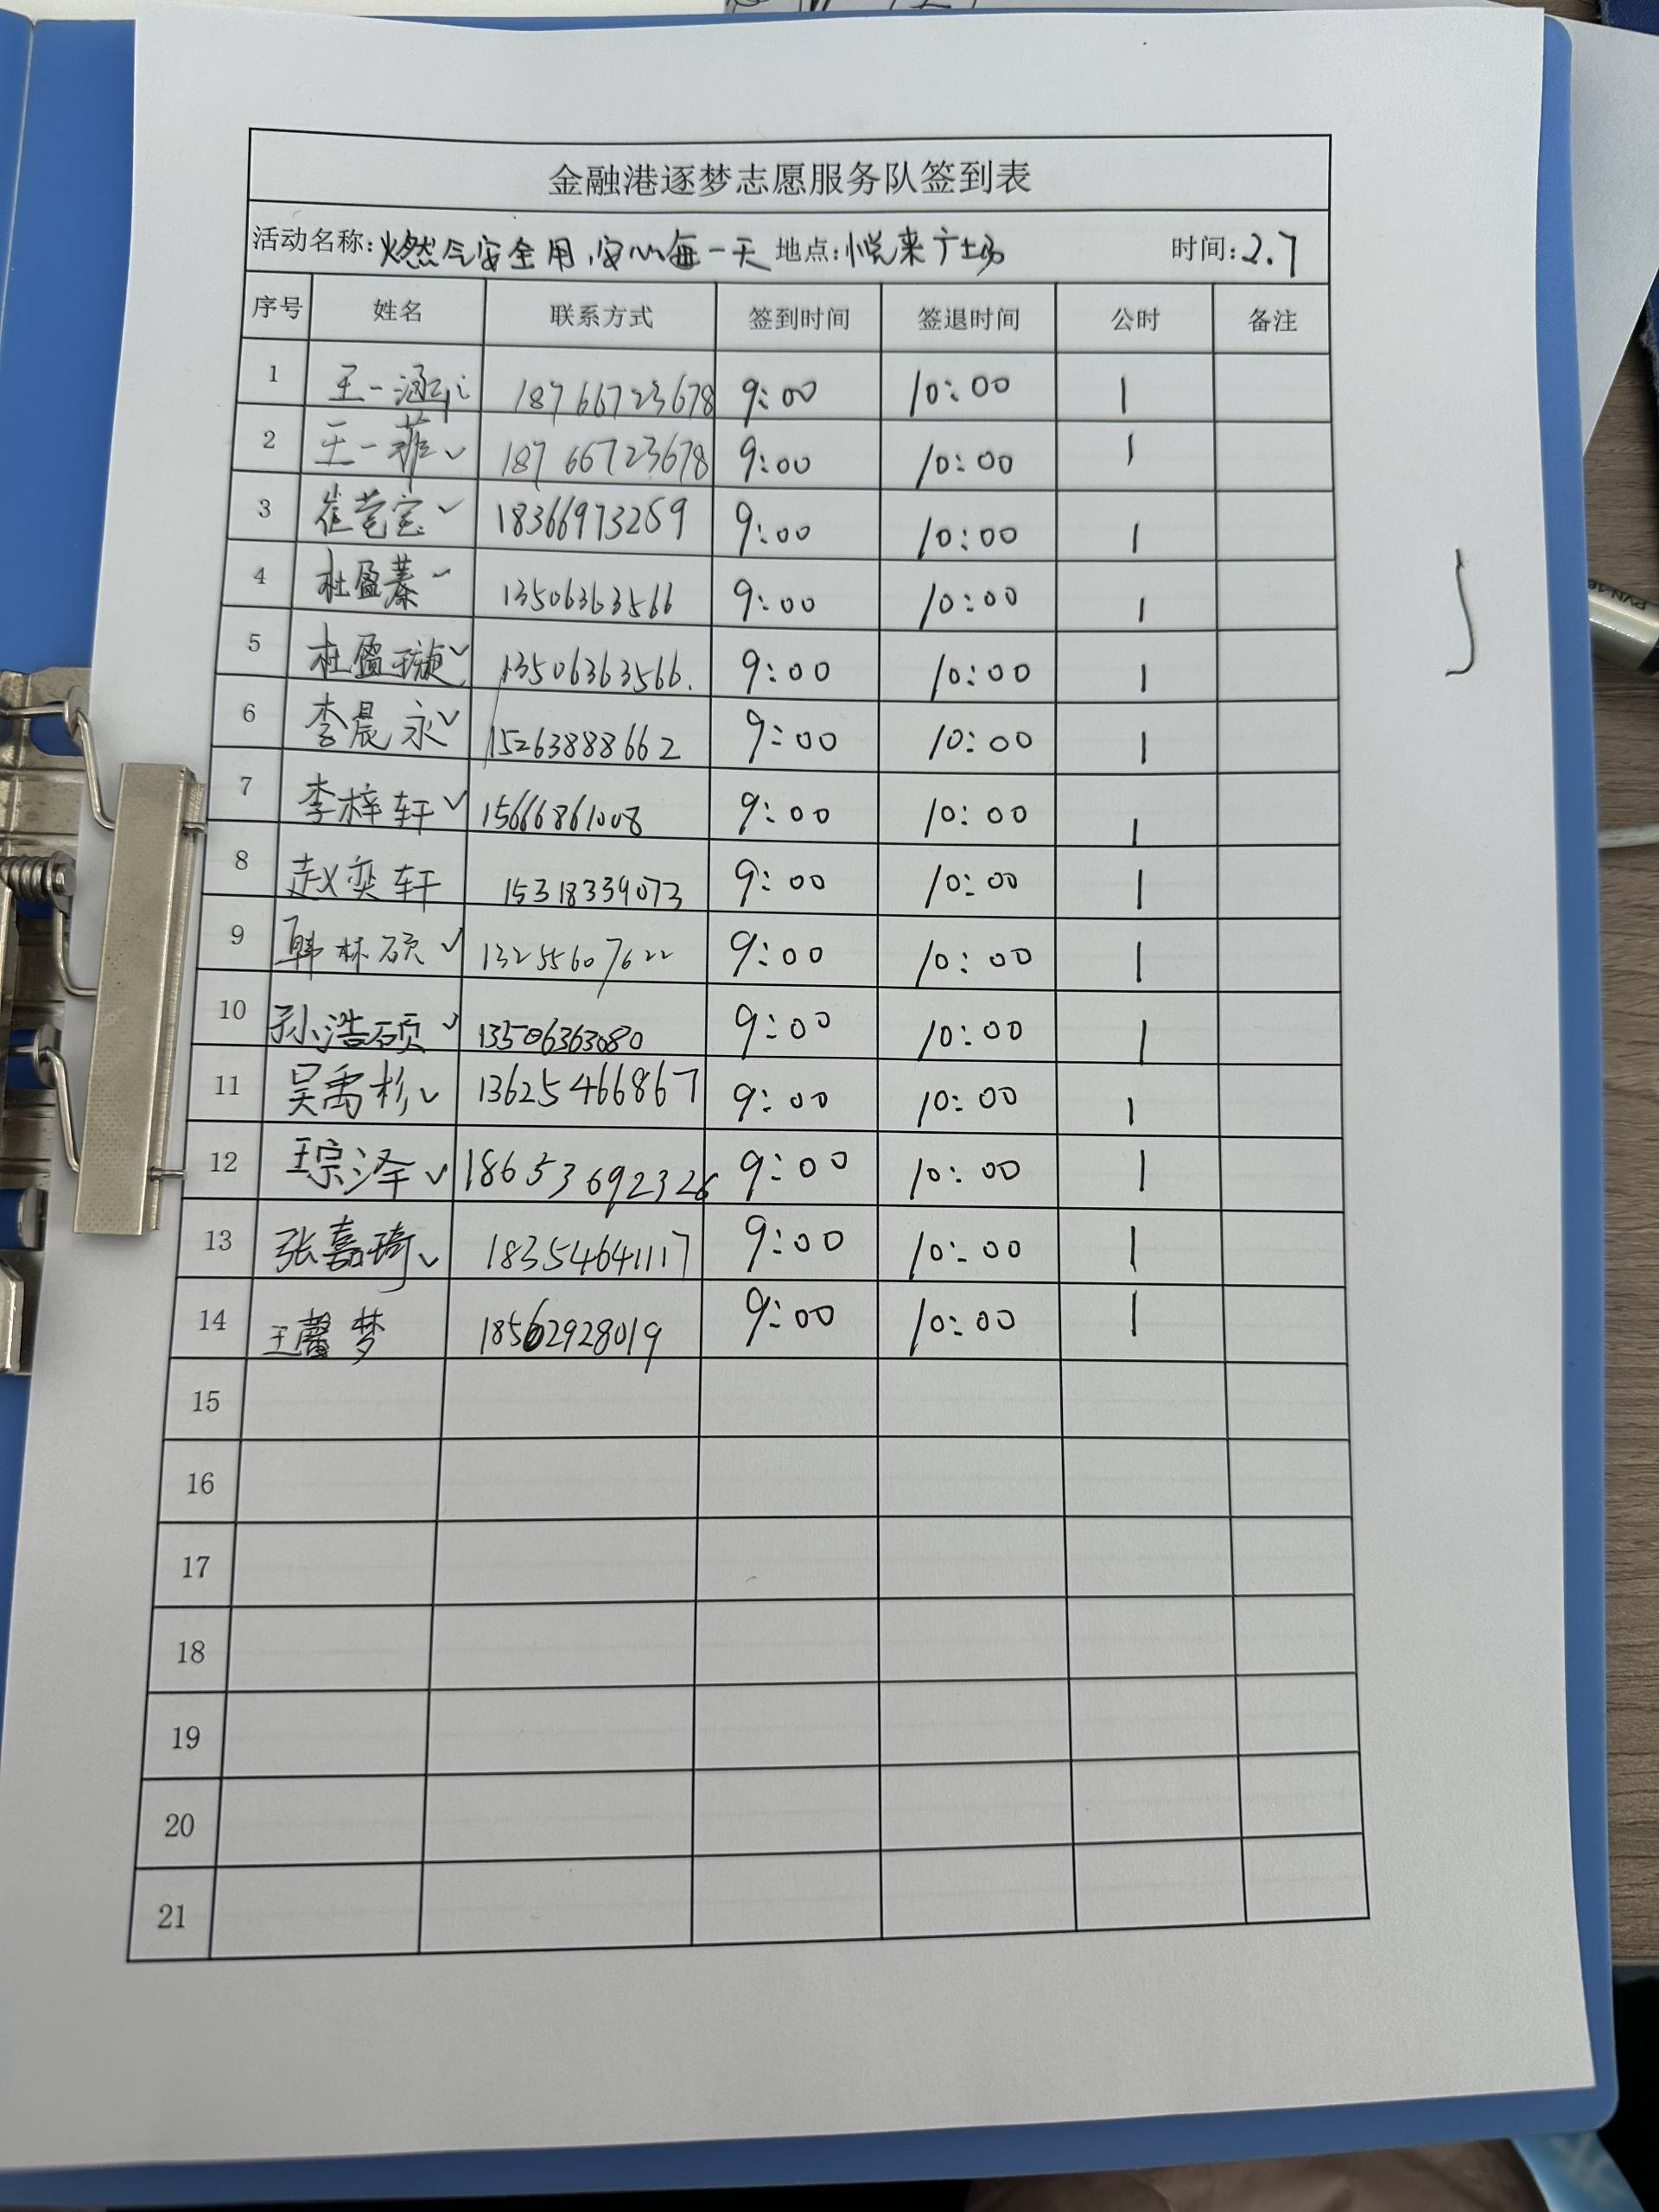 金融港逐梦志愿服务队签到表
活动名称:燃气安全用,安心每一天 地点:悦来广场 时间:2.7
序号 姓名 联系方式 签到时间 签退时间 公时 备注
1 王一涵 18766723678 9:00 10:00 1
2 王一菲 18766723678 9:00 10:00 1
3 崔 18366973259 9:00 10:00 1
4 杜盈蓁 13506363566 9:00 10:00 1
5 杜盈璇 13506363566. 9:00 10:00 1
6 李晨永 15263888662 9:00 10:00 1
7 李梓轩 15666861008 9:00 10:00 1
8 赵奕轩 15318339073 9:00 10:00 1
9 韩林硕 13255607622 9:00 10:00 1
10 孙浩硕 13506363080 9:00 10:00 1
11 吴禹杉 13625466867 9:00 10:00 1
12 王宗泽 18653692326 9:00 10:00 1
13 张嘉琦 18354641117 9:00 10:00 1
14 王馨梦 18562928019 9:00 10:00 1
15
16
17
18
19
20
21